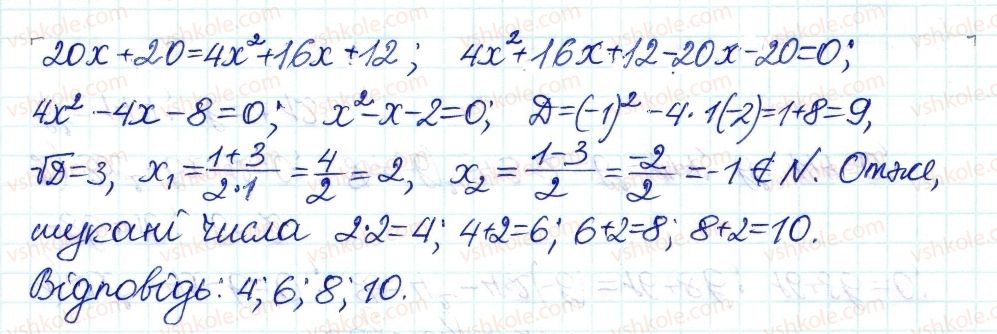 20x+20=4x²+16x+12; 4x²+16x+12-20x-20=0;
4x²-4x-8=0; x²-x-2=0; D=(-1)²-4·1(-2)=1+8=9,
√D=3, x₁=(1+3)/(2·1)=4/2=2, x₂=(1-3)/2=-2/2=-1∉N. Отже,
шукані числа 2·2=4; 4+2=6; 6+2=8; 8+2=10.
Відповідь: 4; 6; 8; 10.